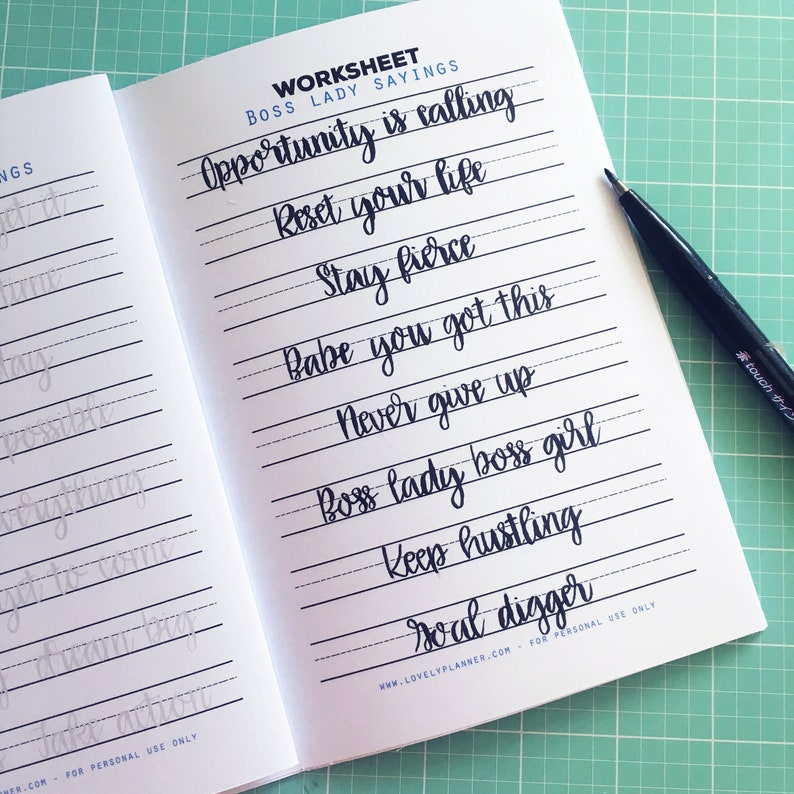 NGS
get it
tune
day
possible
verything
yet to come
dream big
Take action
NER.COM - FOR PERSONAL USE ONLY
WORKSHEET
BOSS LADY SAYINGS
Opportunity is calling
Reset your life
Stay fierce
Babe you got this
Never give up
Boss lady boss girl
Keep hustling
Goal digger
WWW.LOVELYPLANNER.COM - FOR PERSONAL USE ONLY
touch サイン